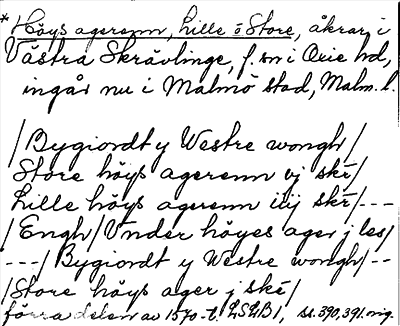 * Höys agerenn, Lille ō Store, åkrar, i
Västra Skrävlinge, f. sn i Oxie hd,
ingår nu i Malmö stad, Malm. l.
/Bygiordt y Westre wongh/
Store höys agerenn vj skē/
Lille höys agerenn iiij skē/---
/Engh/Vnder höyes ager j les/
---/Bygiordt y Westre wongh/--
/Store höys ager j skē/
förra delen av 1570-t. LSGB I, ss. 390, 391 orig.